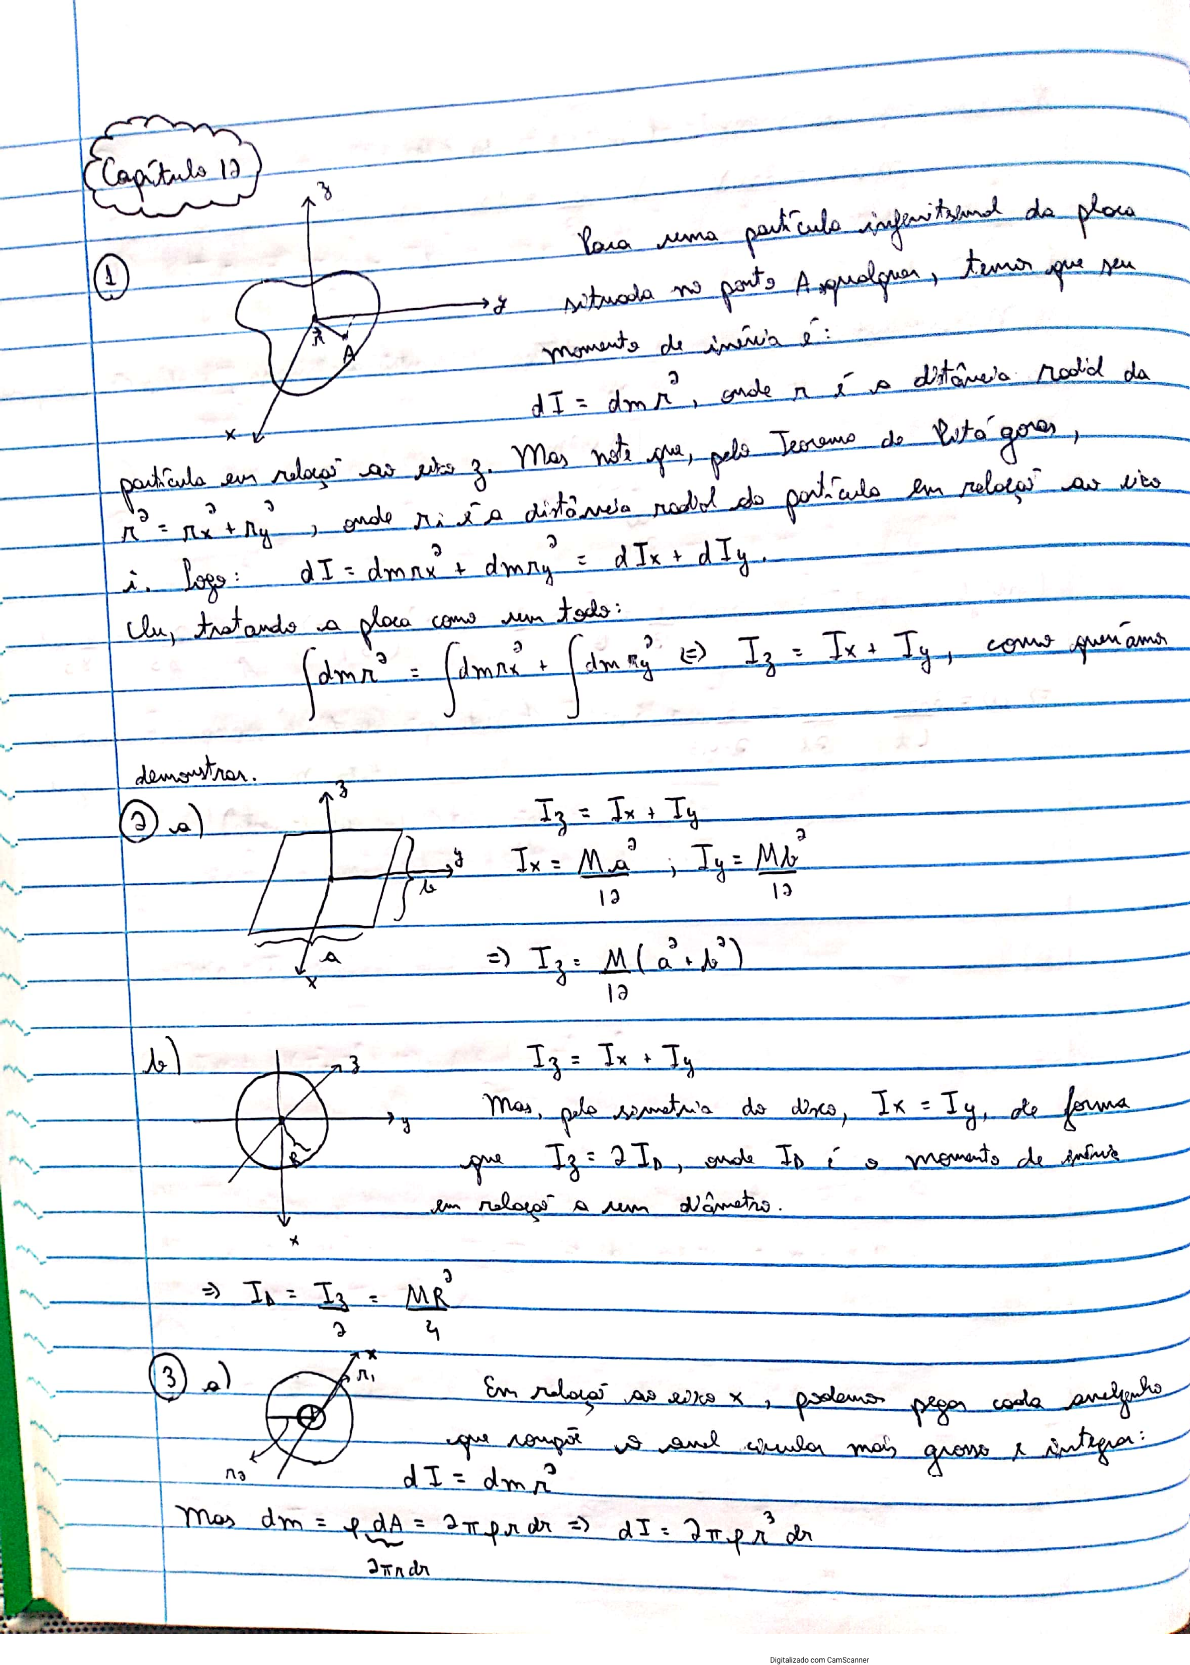 Capítulo 12
①
z
y
x
r
A
Para uma partícula infinitesimal da placa
situada no ponto A qualquer, temos que seu
momento de inércia é:
dI = dm r², onde r é a distância radial da
partícula em relação ao eixo z. Mas note que, pelo Teorema de Pitágoras,
r² = rx² + ry², onde ri é a distância radial da partícula em relação ao eixo
i. Logo: dI = dm rx² + dm ry² = dIx + dIy.
tratando a placa como um todo:
∫dm r² = ∫dm rx² + ∫dm ry² ⇔ Iz = Ix + Iy, como queríamos
demonstrar.
② a)
z
y
b
a
x
Iz = Ix + Iy
Ix = Ma²/12 ; Iy = Mb²/12
⇒ Iz = M/12 (a² + b²)
b)
z
y
R
x
Iz = Ix + Iy
Mas, pela simetria do disco, Ix = Iy, de forma
que Iz = 2 ID, onde ID é o momento de inércia
em relação a um diâmetro.
⇒ ID = Iz/2 = MR²/4
③ a)
x
r1
r2
Em relação ao eixo x, podemos pegar cada anelzinho
que compõe o anel circular mais grosso e integrar:
dI = dm r²
Mas dm = ρ dA = 2πρr dr ⇒ dI = 2πρ r³ dr
2πr dr
Digitalizado com CamScanner